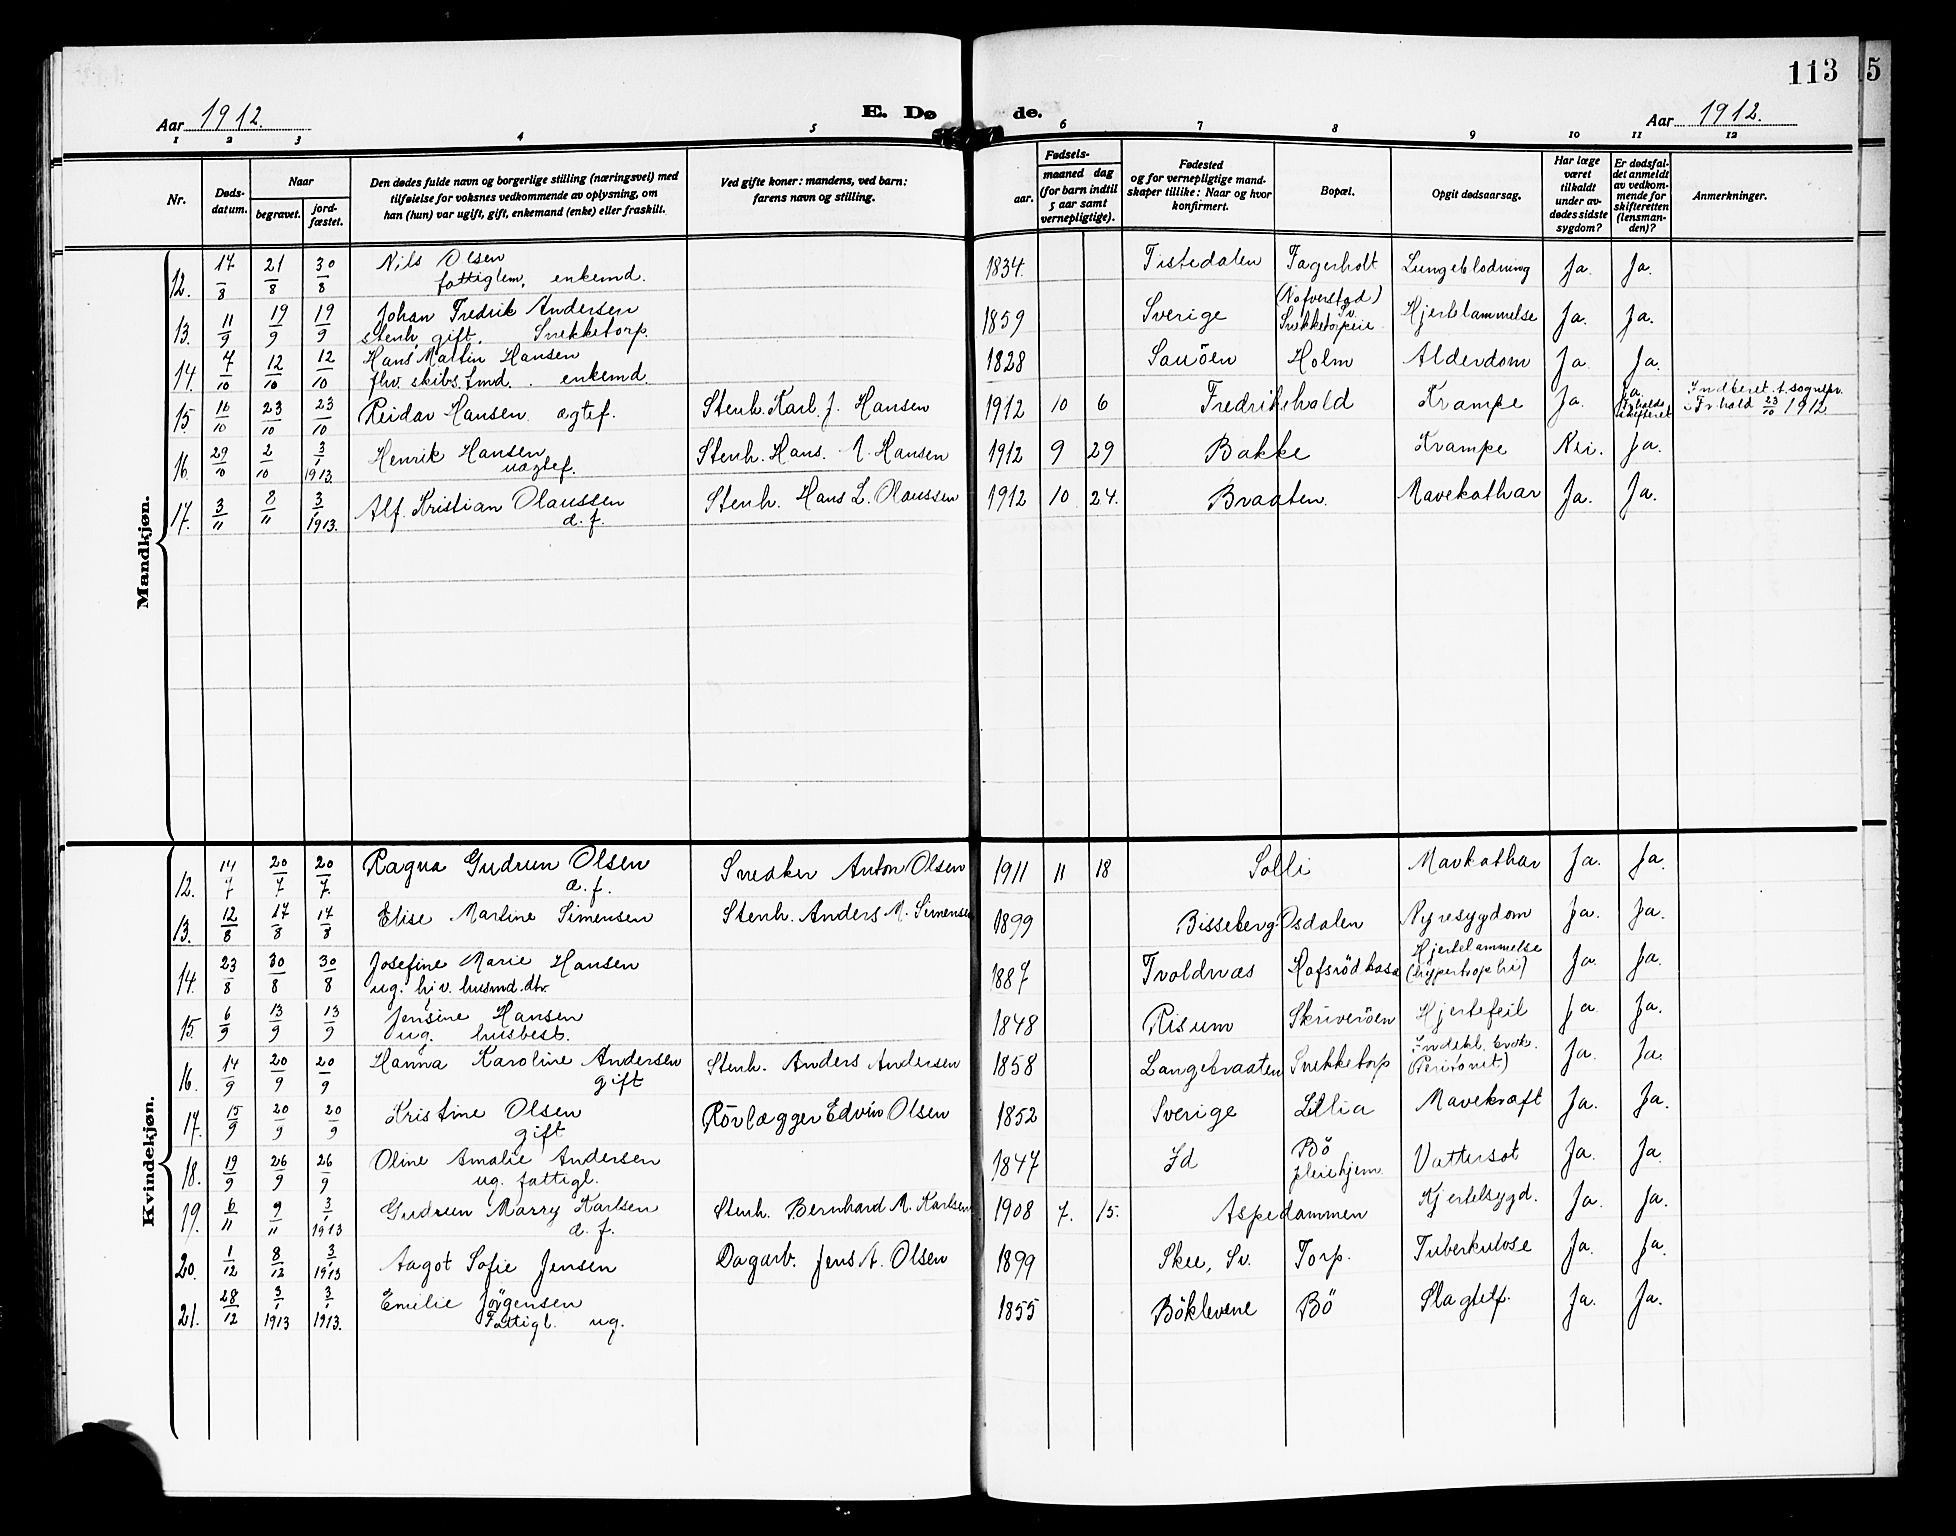 113 5
Aar 1912. E. Dø de. Aar 1912.
1 2 3 4 5 6 7 8 9 10 11 12
Nr.
Døds-
datum.
Naar
begravet.
jord-
fæstet.
Den dødes fulde navn og borgerlige stilling (næringsvei) med
tilføielse for voksnes vedkommende av oplysning, om
han (hun) var ugift, gift, enkemand (enke) eller fraskilt.
Ved gifte koner: mandens, ved barn:
farens navn og stilling.
Fødsels-
aar.
maaned dag
(for barn indtil
5 aar samt
vernepligtige).
Fødested
og for vernepligtige mand-
skaper tillike: Naar og hvor
konfirmert.
Bopæl.
Opgit dødsaarsag.
Har læge
været
tilkaldt
under av-
dødes sidste
sygdom?
Er dødsfal-
det anmeldt
av vedkom-
mende for
skifteretten
(lensman-
den)?
Anmerkninger.
Mandkjøn.
12. 17/8 21/8 30/8 Nils Olsen 1834. Tistedalen Fagerholt Lungeblødning Ja. Ja.
fattiglem, enkemd.
13. 11/9 19/9 19/9 Johan Fredrik Andersen 1859 Sverige (Nafverstad) Sv. Hjertelammelse Ja. Ja.
stenh, gift. Snekketorp. Snekketorpeie
14. 7/10 12/10 12/10 Hans Martin Hansen 1828 Sauöen Holm Alderdom Ja Ja.
fhv. skibs.tmd. enkemd.
15. 16/10 23/10 23/10 Reidar Hansen ægtef. Stenh. Karl J. Hansen 1912 10 6 Fredrikshald Krampe Ja. Ja. Frhalds skifteret Indberet. t. sognepr. i Frhald 23/10 1912
16. 29/10 2/10 3/1 1913. Henrik Hansen Stenh. Hans. A. Hansen 1912 9 29 Bakke Krampe Nei. Ja.
uægtef.
17. 3/11 8/11 3/1 1913. Alf Kristian Olaussen Stenh. Hans L. Olaussen 1912 10 24. Braaten. Mavekathar Ja. Ja.
d. f.
Kvindekjøn.
12. 14/7 20/7 20/7. Ragna Gudrun Olsen Snedker Anton Olsen 1911 11 18 Solli Mavkathar Ja. Ja.
d. f.
13. 12/8 17/8 17/8 Elise Martine Simensen Stenh. Anders M. Simensen 1899 Bisseberg. Osdalen Nyresygdom Ja. Ja.
14. 23/8 30/8 30/8 Josefine Marie Hansen 1887 Tvoldnæs Hafsrödhasa Hjertelammelse Ja. Ja.
ug. hjv. husmd.dtr. (hypertrophi)
15. 6/9 13/9 13/9 Jensine Hansen 1848 Risum Skriveröen Hjertefeil Ja. Ja.
ug. husbest.
16. 14/9 20/9 20/9 Hanna Karoline Andersen Stenh. Anders Andersen 1858 Langebraaten Snekketorp Indekl. brok. Ja. Ja.
gift (Peritonit.)
17. 15/9 20/9 20/9 Kristine Olsen Rörlægger Edvin Olsen 1852 Sverige Lillia Mavekræft Ja. Ja.
gift
18. 19/9 26/9 26/9 Oline Amalie Andersen 1847 Id Bö Vattersot Ja. Ja.
ug. fattigl. pleiehjem
19. 6/11 9/11 3/1 1913 Gudrun Marry Karlsen Stenh. Bernhard M. Karlsen 1908 7. 15. Aspedammen Kjertelsygd. Ja. Ja.
d. f.
20. 1/12 8/12 3/1 1913 Aagot Sofie Jensen Dagarb. Jens A. Olsen 1899 Skee, Sv. Torp. Tuberkulose Ja. Ja.
21. 28/12 3/1 1913 3/1 1913. Emilie Jörgensen 1855 Böklevene Bö Slagtilf. Ja. Ja.
Fattigl. ug.